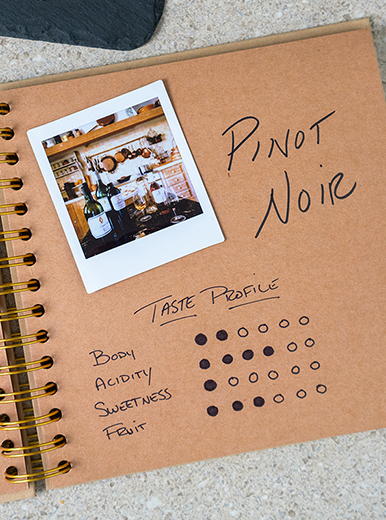 PINOT
NOIR
TASTE PROFILE
BODY
ACIDITY
SWEETNESS
FRUIT